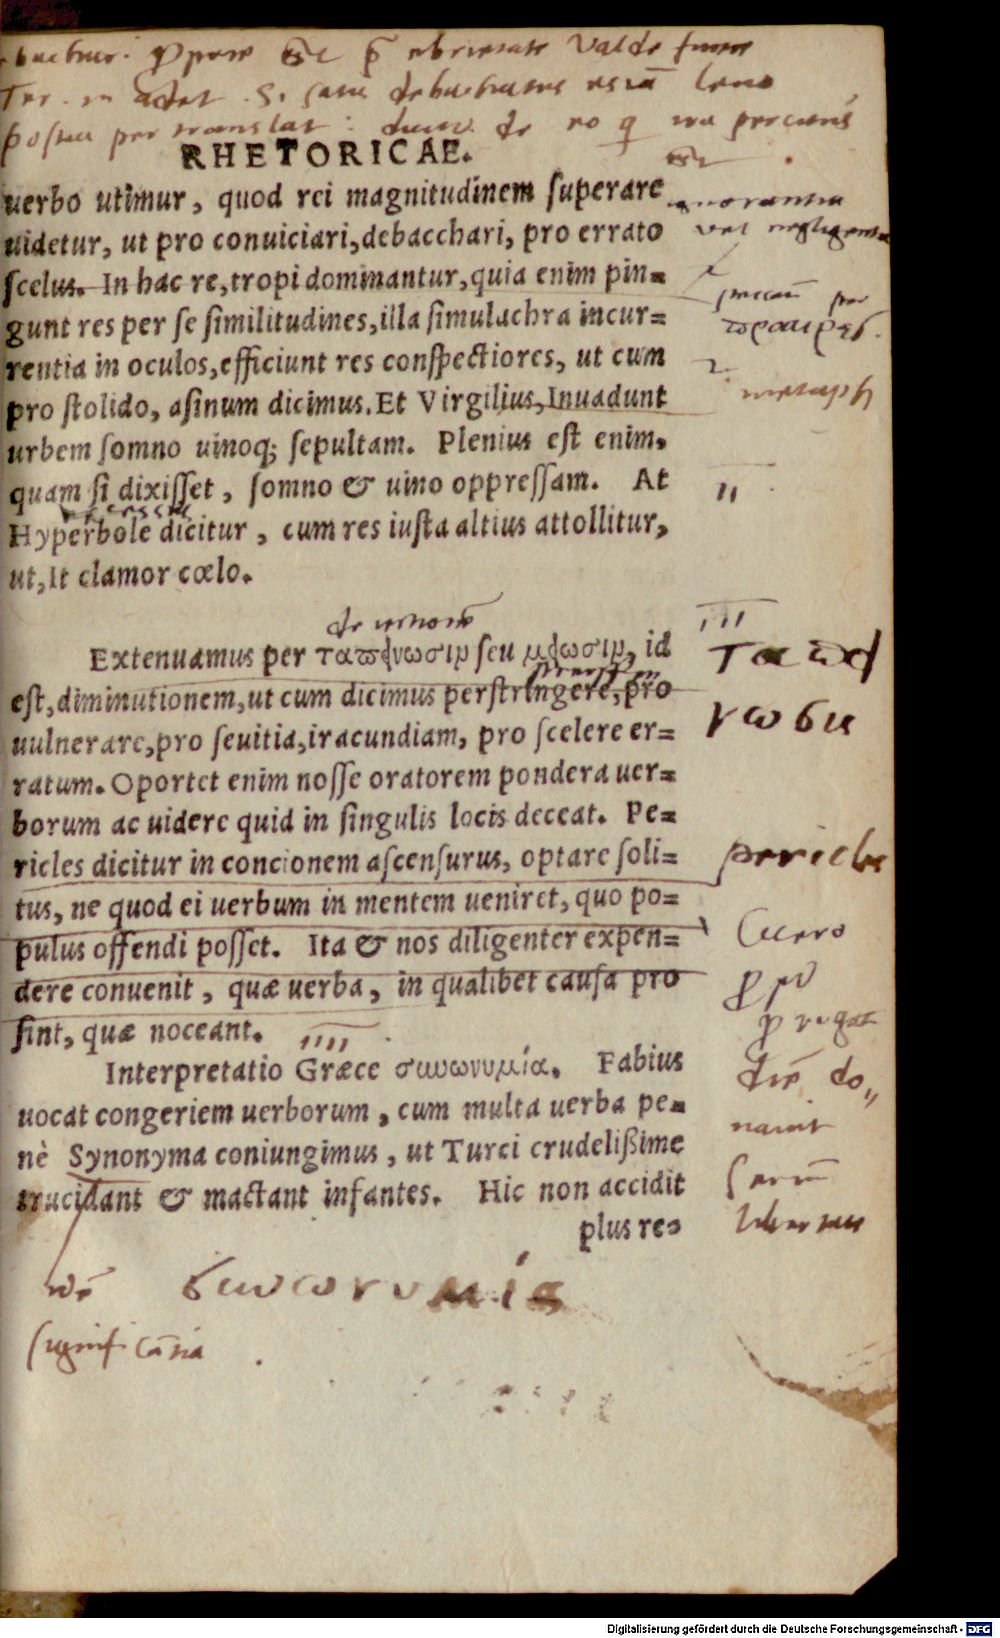 valde furere
Ter. in adel. Si satis debachatus es iã leno
postea per translat: dicitur de eo q
RHETORICAE.
uerbo utimur, quod rei magnitudinem ſuperare
uidetur, ut pro conuiciari, debacchari, pro errato
ſcelus. In hac re, tropi dominantur, quia enim pin=
gunt res per ſe ſimilitudines, illa ſimulachra incur=
rentia in oculos, efficiunt res conſpectiores, ut cum
pro ſtolido, aſinum dicimus. Et Virgilius, Inuadunt
urbem ſomno uinoq; ſepultam. Plenius eſt enim,
quam ſi dixiſſet, ſomno & uino oppreſſam. At
Hyperbole dicitur, cum res iuſta altius attollitur,
ut, It clamor cœlo.
Extenuamus per ταπείνωσιν ſeu μείωσιν, id
eſt, diminutionem, ut cum dicimus perſtringere, pro
uulnerare, pro ſeuitia, iracundiam, pro ſcelere er=
ratum. Oportet enim noſſe oratorem pondera uer=
borum ac uidere quid in ſingulis locis deceat. Pe=
ricles dicitur in concionem aſcenſurus, optare ſoli=
tus, ne quod ei uerbum in mentem ueniret, quo po=
pulus offendi poſſet. Ita & nos diligenter expen=
dere conuenit, quæ uerba, in qualibet cauſa pro
ſint, quæ noceant.
Interpretatio Græce συνωνυμία. Fabius
uocat congeriem uerborum, cum multa uerba pe=
nè Synonyma coniungimus, ut Turci crudelißime
trucidant & mactant infantes. Hic non accidit
plus re=
ignorantia
vel negligentia
metaph
II
III
ταπεί
νωσις
pericle
Cicero
IIII
συνωνυμία
significantia
Digitalisierung gefördert durch die Deutsche Forschungsgemeinschaft - DFG